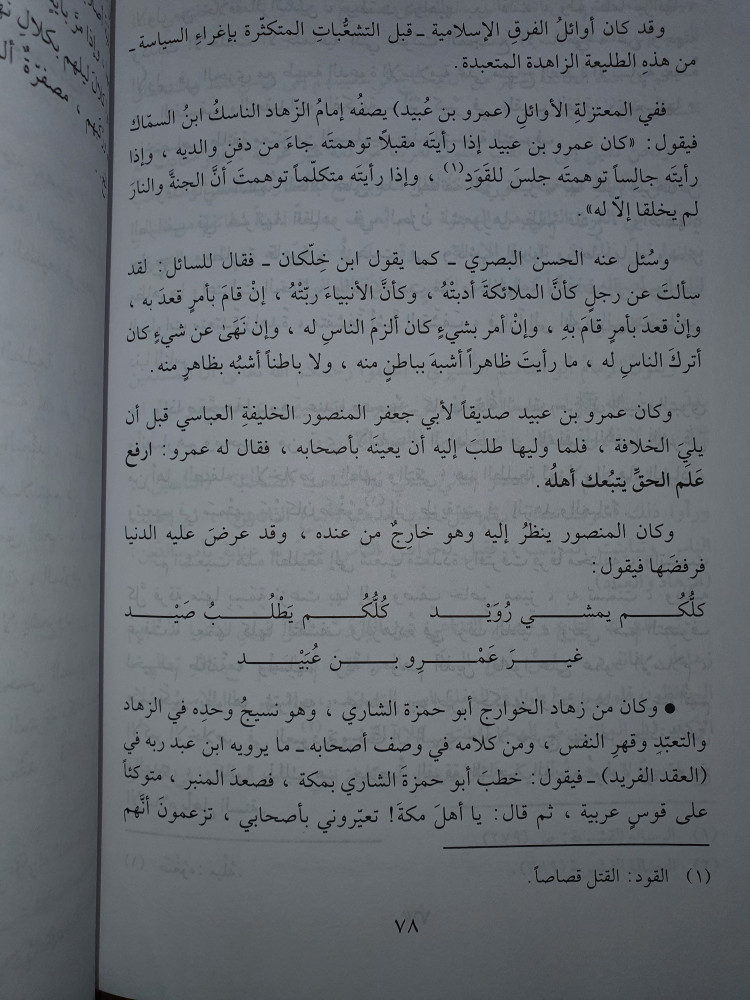 وقد كان أوائلُ الفرقِ الإسلامية ـ قبل التشعُّباتِ المتكثّرة بإغراءِ السياسة ـ
من هذهِ الطليعة الزاهدة المتعبدة.
ففي المعتزلةِ الأوائلِ (عمرو بن عُبيد) يصفُه إمامُ الزّهاد الناسكُ ابنُ السمّاك
فيقول: «كان عمرو بن عبيد إذا رأيتَه مقبلاً توهمتَه جاءَ من دفنِ والديه، وإذا
رأيتَه جالِساً توهمتَه جلسَ للقَوَدِ(١)، وإذا رأيتَه متكلّماً توهمتَ أنَّ الجنةَ والنارَ
لم يخلقا إلّا له».
وسُئل عنه الحسن البصري ـ كما يقول ابن خِلّكان ـ فقال للسائل: لقد
سألتَ عن رجلٍ كأنَّ الملائكةَ أدبتْهُ، وكأنَّ الأنبياءَ ربّتْهُ، إنْ قامَ بأمرٍ قعدَ به،
وإنْ قعدَ بأمرٍ قامَ بهِ، وإنْ أمر بشيءٍ كان ألزمَ الناسِ له، وإن نَهَىٰ عن شيءٍ كان
أتركَ الناسِ له، ما رأيتَ ظاهراً أشبهَ بباطنٍ منه، ولا باطناً أشبُه بظاهرٍ منه.
وكان عمرو بن عبيد صديقاً لأبي جعفر المنصور الخليفةِ العباسي قبل أن
يليَ الخلافة، فلما وليها طلبَ إليه أن يعينَه بأصحابه، فقال له عمرو: ارفع
عَلَم الحقِّ يتبُعك أهلُه.
وكان المنصور ينظرُ إليه وهو خارِجٌ من عنده، وقد عرضَ عليه الدنيا
فرفضَها فيقول:
كلُّكُــم يمشــي رُوَيْــد كُلُّكُــم يَطْلُــبُ صَيْــد
غيــرَ عَمْــرِو بــن عُبَيْــد
● وكان من زهاد الخوارج أبو حمزة الشاري، وهو نسيجُ وحدِه في الزهاد
والتعبّدِ وقهرِ النفس، ومن كلامه في وصف أصحابه ـ ما يرويه ابن عبد ربه في
(العقد الفريد) ـ فيقول: خطبَ أبو حمزةَ الشاري بمكة، فصعدَ المنبر، متوكئاً
على قوسٍ عربية، ثم قال: يا أهلَ مكةَ! تعيّروني بأصحابي، تزعمونَ أنَّهم
(١) القود: القتل قصاصاً.
٧٨